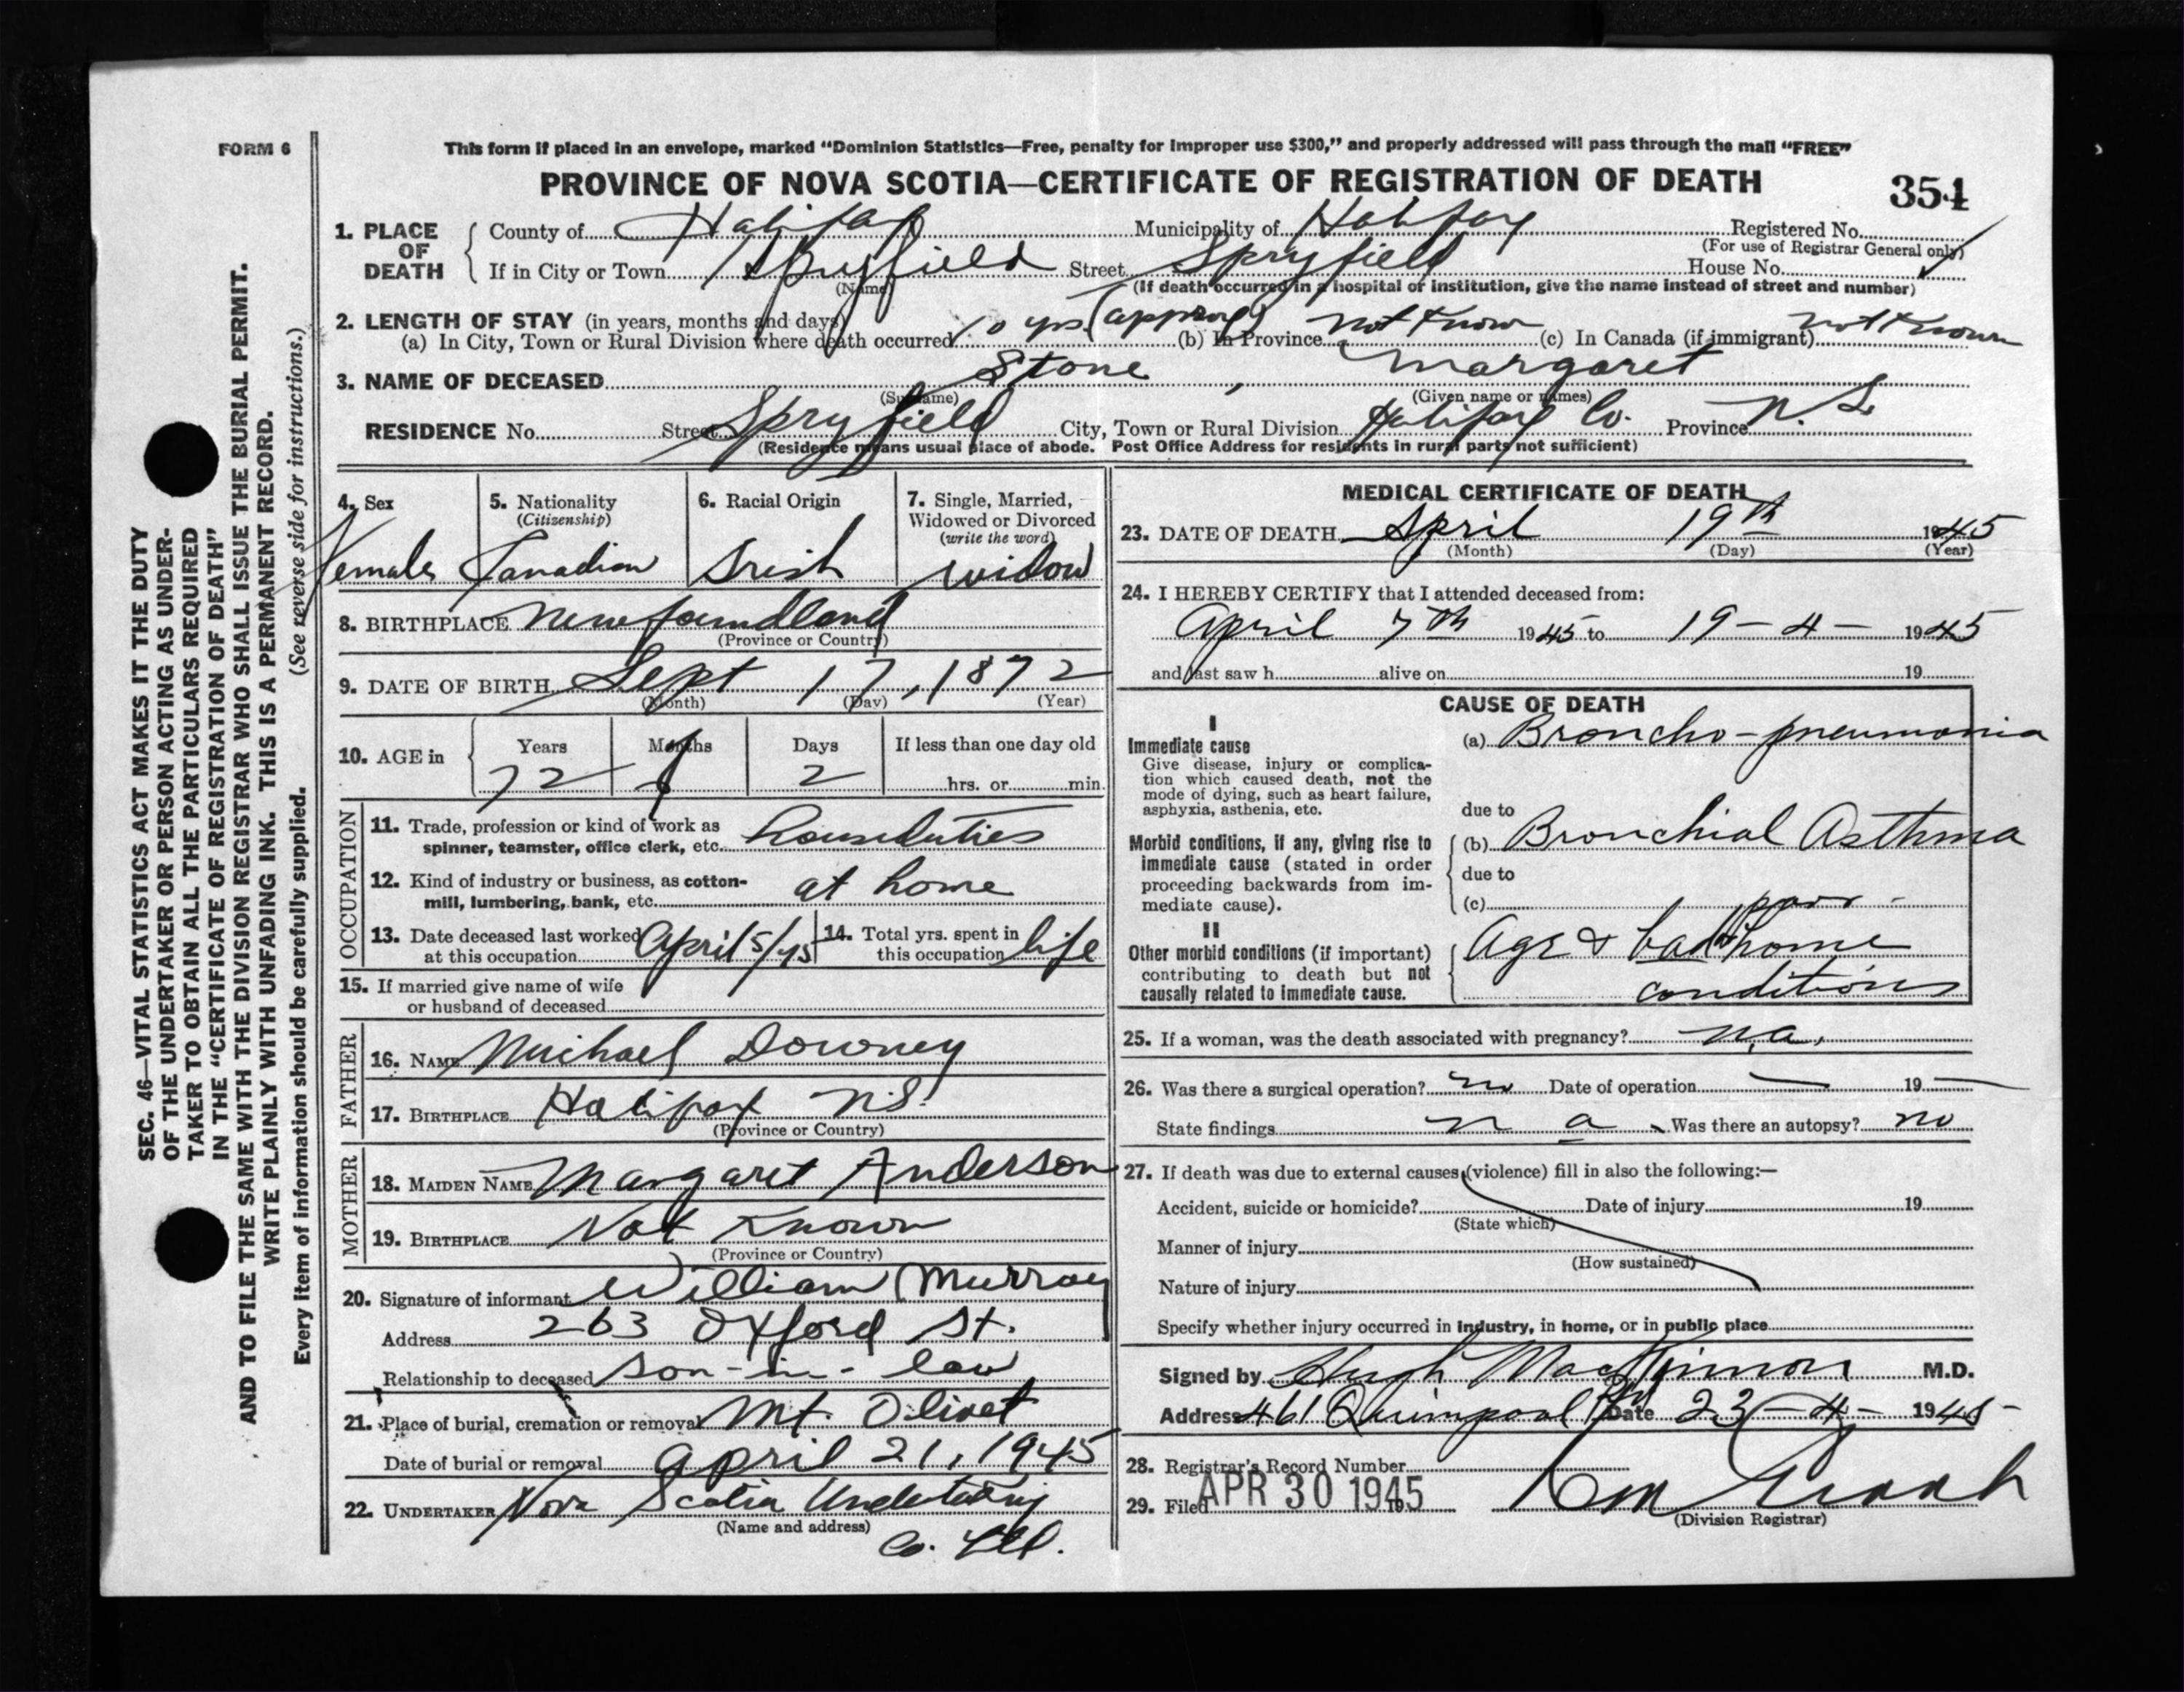 FORM 6
This form if placed in an envelope, marked "Dominion Statistics—Free, penalty for improper use $300," and properly addressed will pass through the mail "FREE"
PROVINCE OF NOVA SCOTIA—CERTIFICATE OF REGISTRATION OF DEATH
354
1. PLACE OF DEATH County of Halifax Municipality of Halifax Registered No.
(For use of Registrar General only)
If in City or Town Spryfield Street Spryfield House No.
(Name) (If death occurred in a hospital or institution, give the name instead of street and number)
2. LENGTH OF STAY (in years, months and days)
(a) In City, Town or Rural Division where death occurred 10 yrs. (approx) (b) In Province not know (c) In Canada (if immigrant) not known
3. NAME OF DECEASED Stone, Margaret
(Surname) (Given name or names)
RESIDENCE No. Street Spryfield City, Town or Rural Division Halifax Co. Province N.S.
(Residence means usual place of abode. Post Office Address for residents in rural parts not sufficient)
4. Sex 5. Nationality 6. Racial Origin 7. Single, Married,
(Citizenship) Widowed or Divorced
(write the word)
Female Canadian Irish widow
8. BIRTHPLACE Newfoundland
(Province or Country)
9. DATE OF BIRTH Sept 17, 1872
(Month) (Day) (Year)
10. AGE in Years Months Days If less than one day old
72 2 hrs. or min.
OCCUPATION
11. Trade, profession or kind of work as
spinner, teamster, office clerk, etc. houseduties
12. Kind of industry or business, as cotton-
mill, lumbering, bank, etc. at home
13. Date deceased last worked 14. Total yrs. spent in
at this occupation April 5/45 this occupation life
15. If married give name of wife
or husband of deceased
FATHER
16. NAME Michael Downey
17. BIRTHPLACE Halifax N.S.
(Province or Country)
MOTHER
18. MAIDEN NAME Margaret Anderson
19. BIRTHPLACE Not Known
(Province or Country)
20. Signature of informant William Murray
Address 263 Oxford St.
Relationship to deceased son-in-law
21. Place of burial, cremation or removal Mt. Olivet
Date of burial or removal April 21, 1945
22. UNDERTAKER Nova Scotia Undertaking
(Name and address)
Co. Ltd.
MEDICAL CERTIFICATE OF DEATH
23. DATE OF DEATH April 19th 1945
(Month) (Day) (Year)
24. I HEREBY CERTIFY that I attended deceased from:
April 7th 1945 to 19-4- 1945
and last saw h alive on 19
CAUSE OF DEATH
I
Immediate cause (a) Broncho-pneumonia
Give disease, injury or complica-
tion which caused death, not the
mode of dying, such as heart failure,
asphyxia, asthenia, etc. due to
Morbid conditions, if any, giving rise to (b) Bronchial Asthma
immediate cause (stated in order
proceeding backwards from im- due to
mediate cause). (c)
II
Other morbid conditions (if important) Age & bad poor home
contributing to death but not
causally related to immediate cause. conditions
25. If a woman, was the death associated with pregnancy? n.a.
26. Was there a surgical operation? no Date of operation — 19 —
State findings n a Was there an autopsy? no
27. If death was due to external causes (violence) fill in also the following:—
Accident, suicide or homicide? Date of injury 19
(State which)
Manner of injury
(How sustained)
Nature of injury
Specify whether injury occurred in industry, in home, or in public place
Signed by Hugh MacKinnon M.D.
Address 461 Quinpool Rd Date 23-4- 1945
28. Registrar's Record Number
29. Filed APR 30 1945 19
(Division Registrar)
SEC. 46—VITAL STATISTICS ACT MAKES IT THE DUTY
OF THE UNDERTAKER OR PERSON ACTING AS UNDER-
TAKER TO OBTAIN ALL THE PARTICULARS REQUIRED
IN THE "CERTIFICATE OF REGISTRATION OF DEATH"
AND TO FILE THE SAME WITH THE DIVISION REGISTRAR WHO SHALL ISSUE THE BURIAL PERMIT.
WRITE PLAINLY WITH UNFADING INK. THIS IS A PERMANENT RECORD.
Every item of information should be carefully supplied. (See reverse side for instructions.)